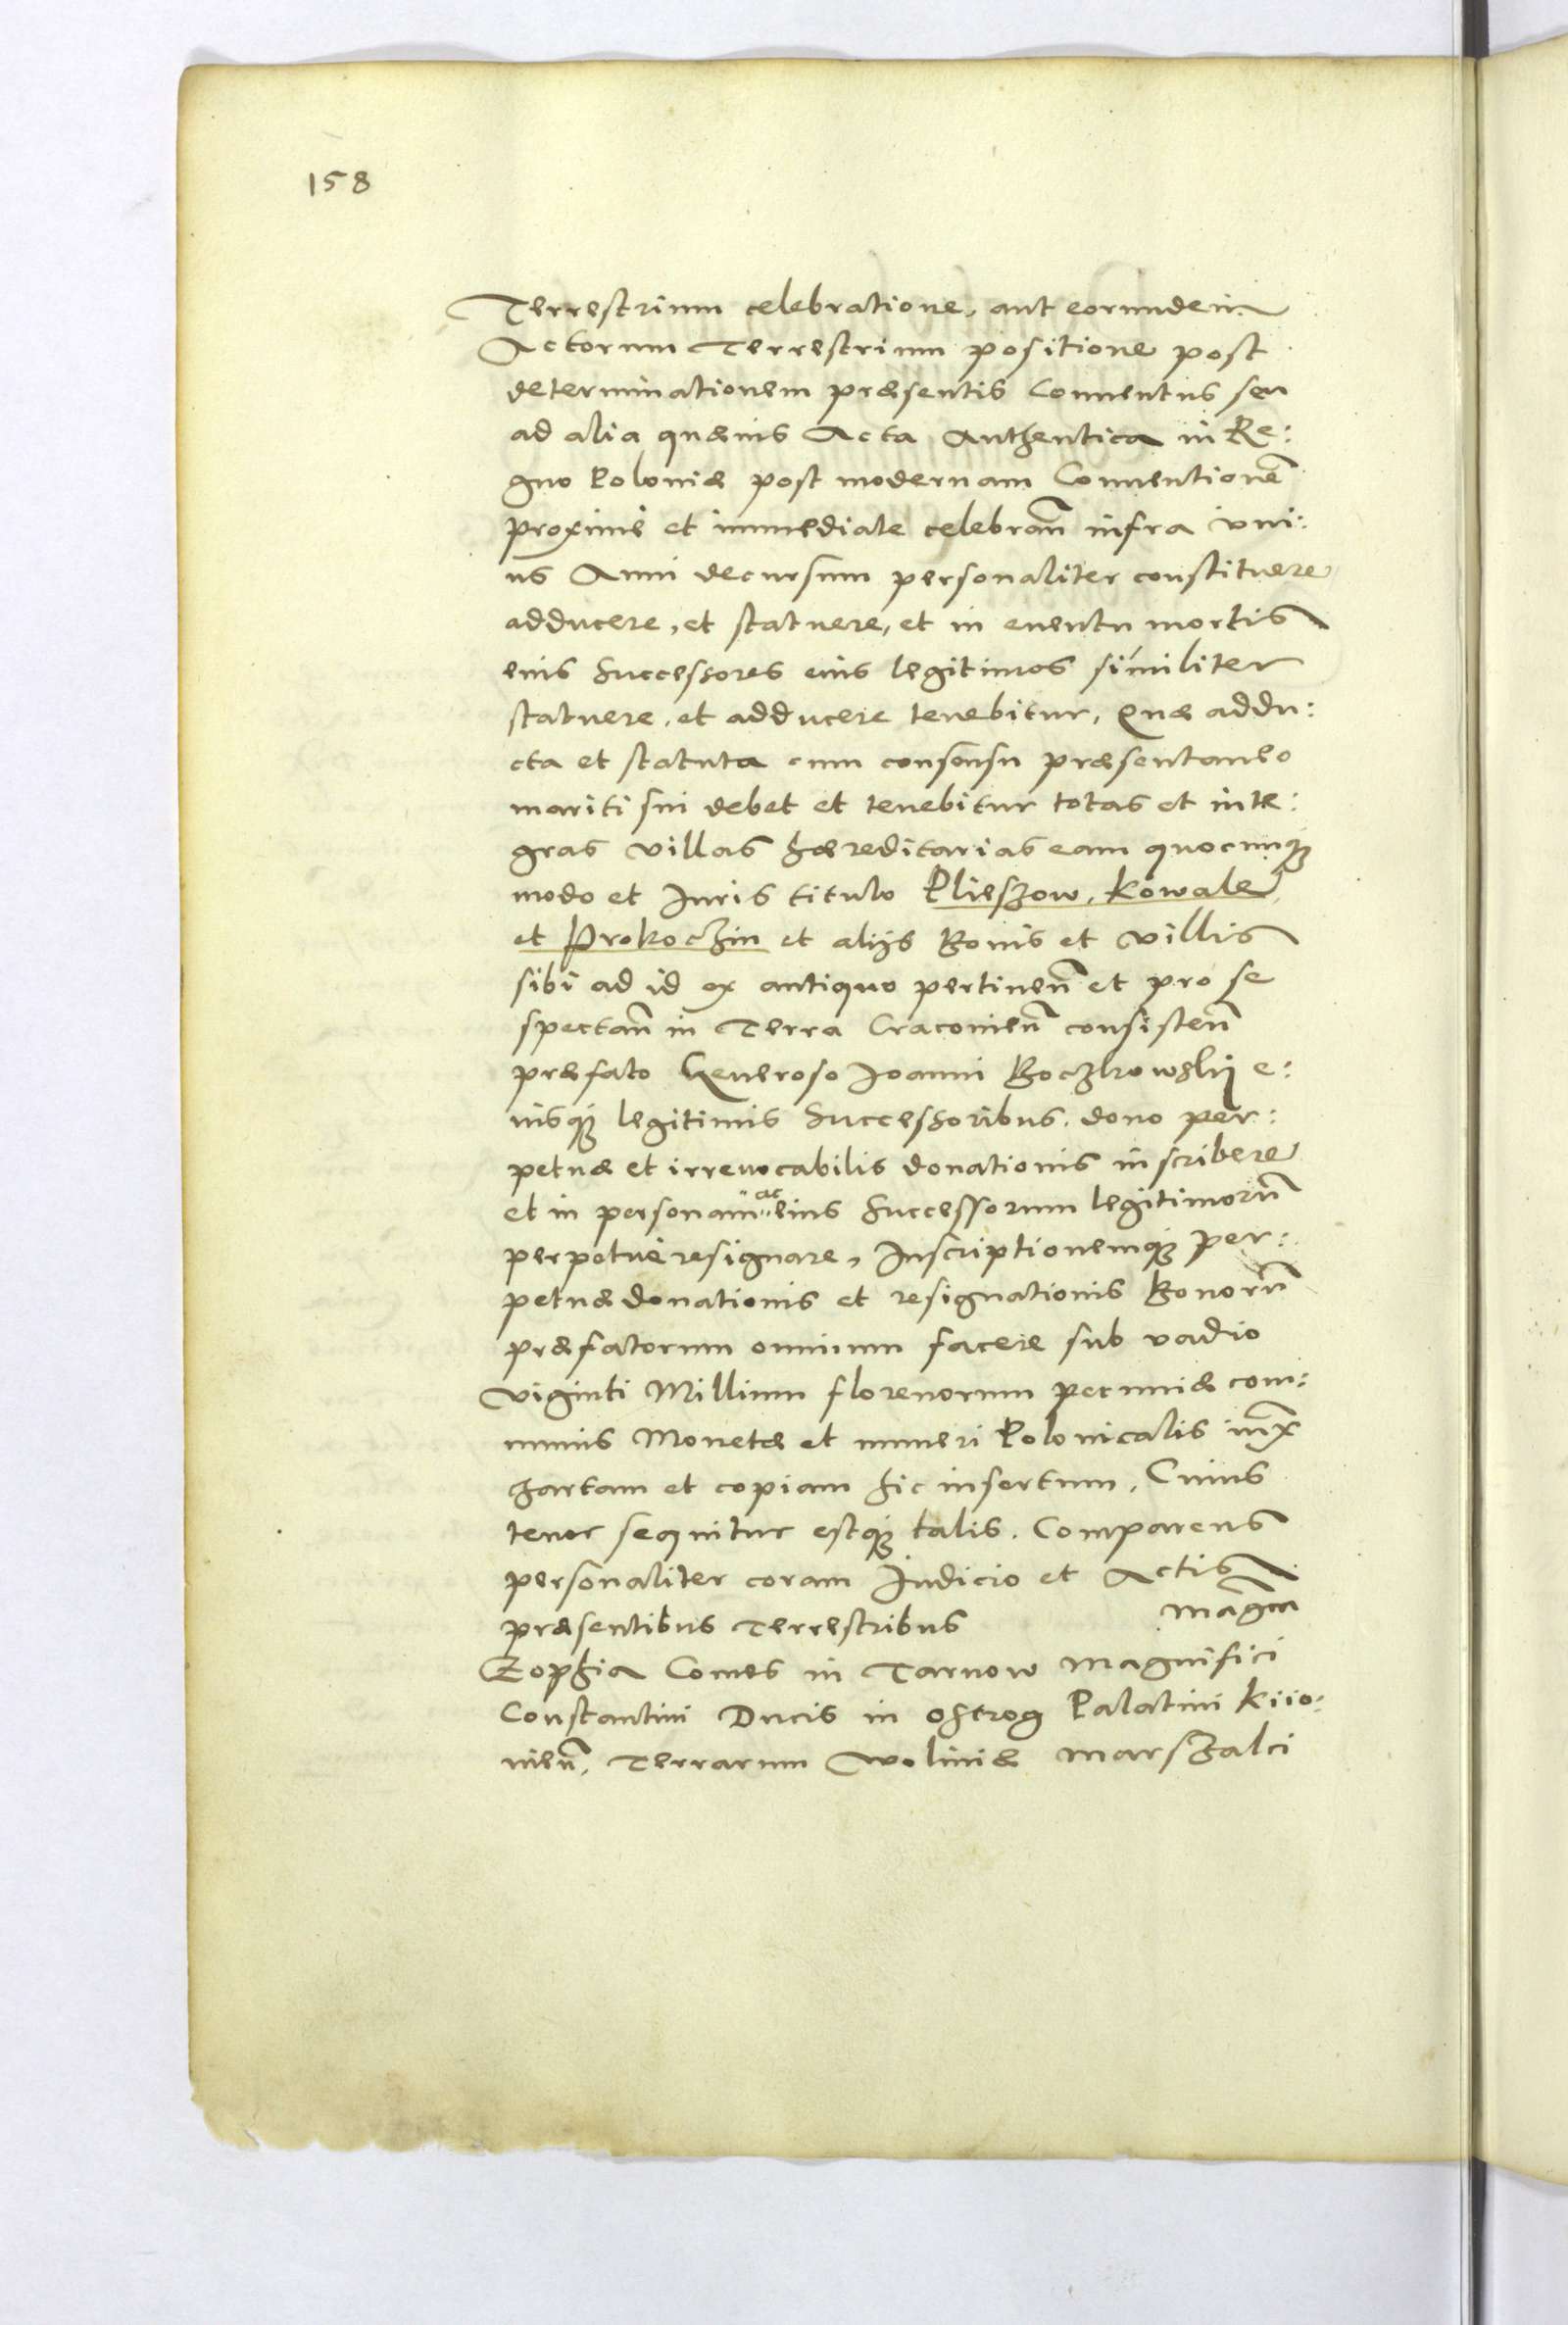 158
Terrestrium celebratione, aut eorundem
Actorum Terrestrium positione post
determinationem præsentis Conuentus seu
ad alia quæuis Acta Authentica in Re:
gno Poloniæ post modernam Conuentionē
proxime et immediate celebrań infra vni:
us Anni decursum personaliter constituere
adducere, et statuere, et in euentu mortis
eius Successores eius legitimos similiter
statuere, et adducere tenebitur, Quæ addu:
cta et statuta cum consensu præsentaneo
mariti sui debet et tenebitur totas et inte:
gras villas hæreditarias eam quocunq;
modo et Iuris titulo Plieszow, Kowale
et Prokoczin et alijs Bonis et villis
sibi ad id ex antiquo pertineń et pro se
spectań in Terra Cracouień consisteń
præfato Generoso Ioanni Boczkowskij e:
iusq; legitimis Successoribus dono per:
petuæ et irreuocabilis donationis inscribere
et in personam ac eius Successorum legitimorū
perpetue resignare, Inscriptionemq; per:
petuæ donationis et resignationis Bonorū
præfatorum omnium facere sub vadio
viginti Millium florenorum pecuniæ com:
munis Monetæ et numeri Polonicalis iux̄
chartam et copiam hic insertum, Cuius
tenor sequitur estq; talis. Comparens
personaliter coram Iudicio et Actis
præsentibus Terrestribus Magca
Zophia Comes in Tarnow Magnifici
Constantini Ducis in Ostrog Palatini Kiio:
uień, Terrarum Woliniæ Marszalci